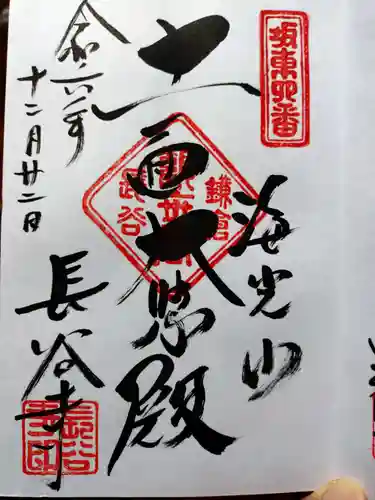 坂東四番
海光山
十一面大悲殿
鎌倉
長谷
令和六年
十二月廿二日
長谷寺